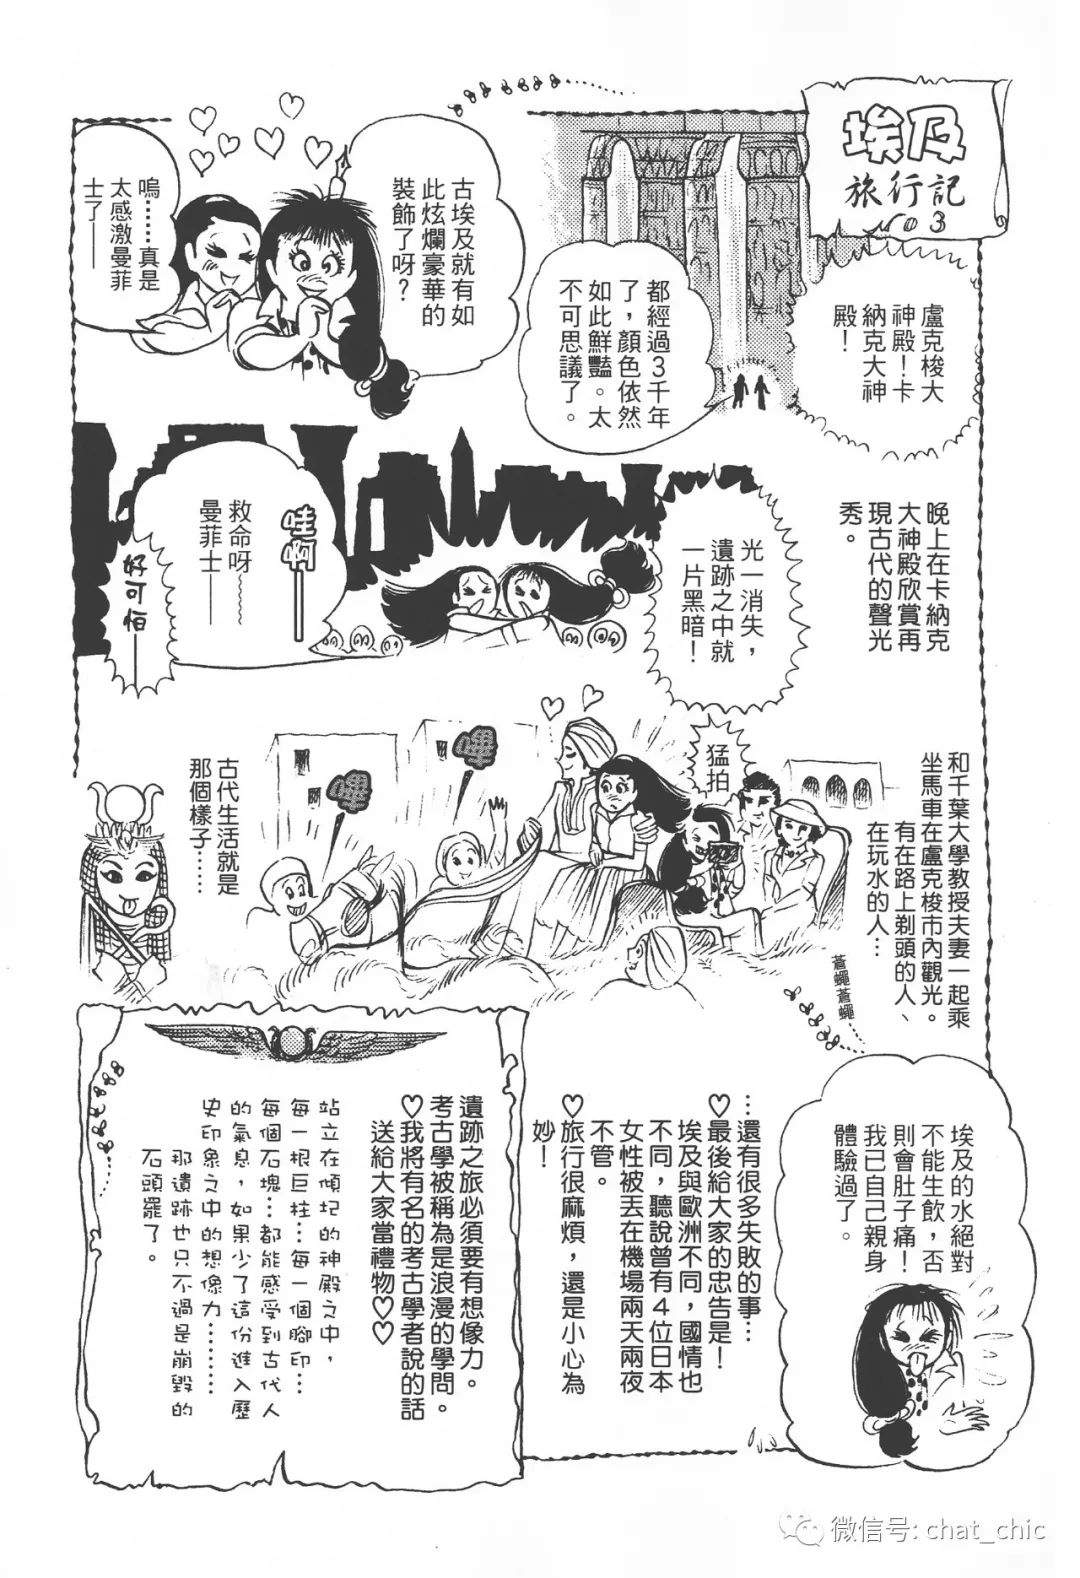 埃及
旅行記
3
盧克梭大
神殿！卡
納克大神
殿！
都經過3千年
了，顏色依然
如此鮮豔。太
不可思議了。
古埃及就有如
此炫爛豪華的
裝飾了呀？
嗚……真是
太感激曼菲
士了——
晚上在卡納克
大神殿欣賞再
現古代的聲光
秀。
光一消失，
遺跡之中就
一片黑暗！
哇啊——
救命呀～～
曼菲士——
好可怕——
和千葉大學教授夫妻一起乘
坐馬車在盧克梭市內觀光。
有在路上剃頭的人、
在玩水的人…
猛拍
嗶
嗶
古代生活就是
那個樣子……
蒼蠅蒼蠅…
埃及的水絕對
不能生飲，否
則會肚子痛！
我已自己親身
體驗過了。
…還有很多失敗的事…
♡最後給大家的忠告是！
埃及與歐洲不同，國情也
不同，聽說曾有4位日本
女性被丟在機場兩天兩夜
不管。
♡旅行很麻煩，還是小心為
妙！
遺跡之旅必須要有想像力。
考古學被稱為是浪漫的學問。
♡我將有名的考古學者說的話
送給大家當禮物♡♡
站立在傾圮的神殿之中，
每一根巨柱…每一個腳印…
每個石塊…都能感受到古代人
的氣息，如果少了這份進入歷
史印象之中的想像力…………
那遺跡也只不過是崩毀的
石頭罷了。
微信号: chat_chic